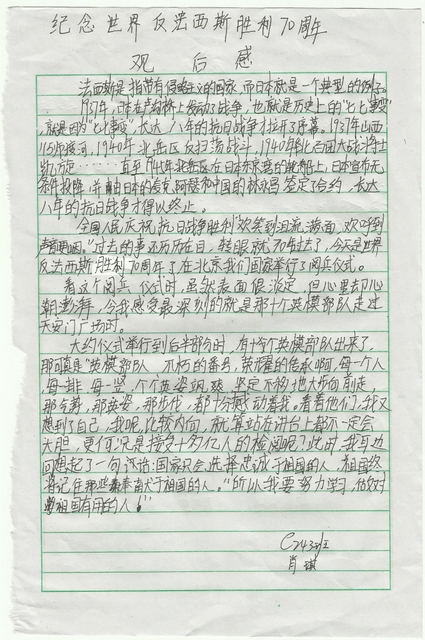 纪念世界反法西斯胜利70周年
观后感
法西斯是指带有侵略主义的国家,而日本就是一个典型的例子。
1937年,日军在卢沟桥上发动了战争,也就是历史上的"七七事变"
,就是因为"七七事变",长达八年的抗日战争才拉开了序幕。1937年山西
115师 1940年北岳区反扫荡战斗,1940年 百团大战
直至1945年 在日本东京湾的 上,日本宣布无
条件投降,并由日本的 和中国的 签定了合约,长达
八年的抗日战争才得以终止。
全国人民庆祝抗日战争胜利"欢笑到泪流满面,欢呼到
声音 。"过去的事还历历在目,转眼就70年过去了,今天是世界
反法西斯胜利70周年了在北京我们国家举行了阅兵仪式。
看这个阅兵仪式时,虽然表面很淡定,但心里却心
潮澎湃,令我感受最深刻的就是那十个英模部队走过
天安门广场时。
大约仪式举行到后半部分时,有十个英模部队出来了,
那可真是"英模部队 不朽的番号,荣耀的传承啊,每一个人
每一排,每一竖,个个英姿飒爽,坚定不移地大步向前走,
那气势,那英姿,那步伐,都十分撼动着我,看着他们,我又
想到了自己,我呢,比较内向,就算站在讲台上都不一定会
大胆,更何况是接受十多亿人的检阅呢?此时,我耳边
回想起了一句话:国家只会选择忠诚于祖国的人,祖国终
将记住那些奉献于祖国的人。"所以我要努力学习,做个对
祖国有用的人!"
C243班
肖琪